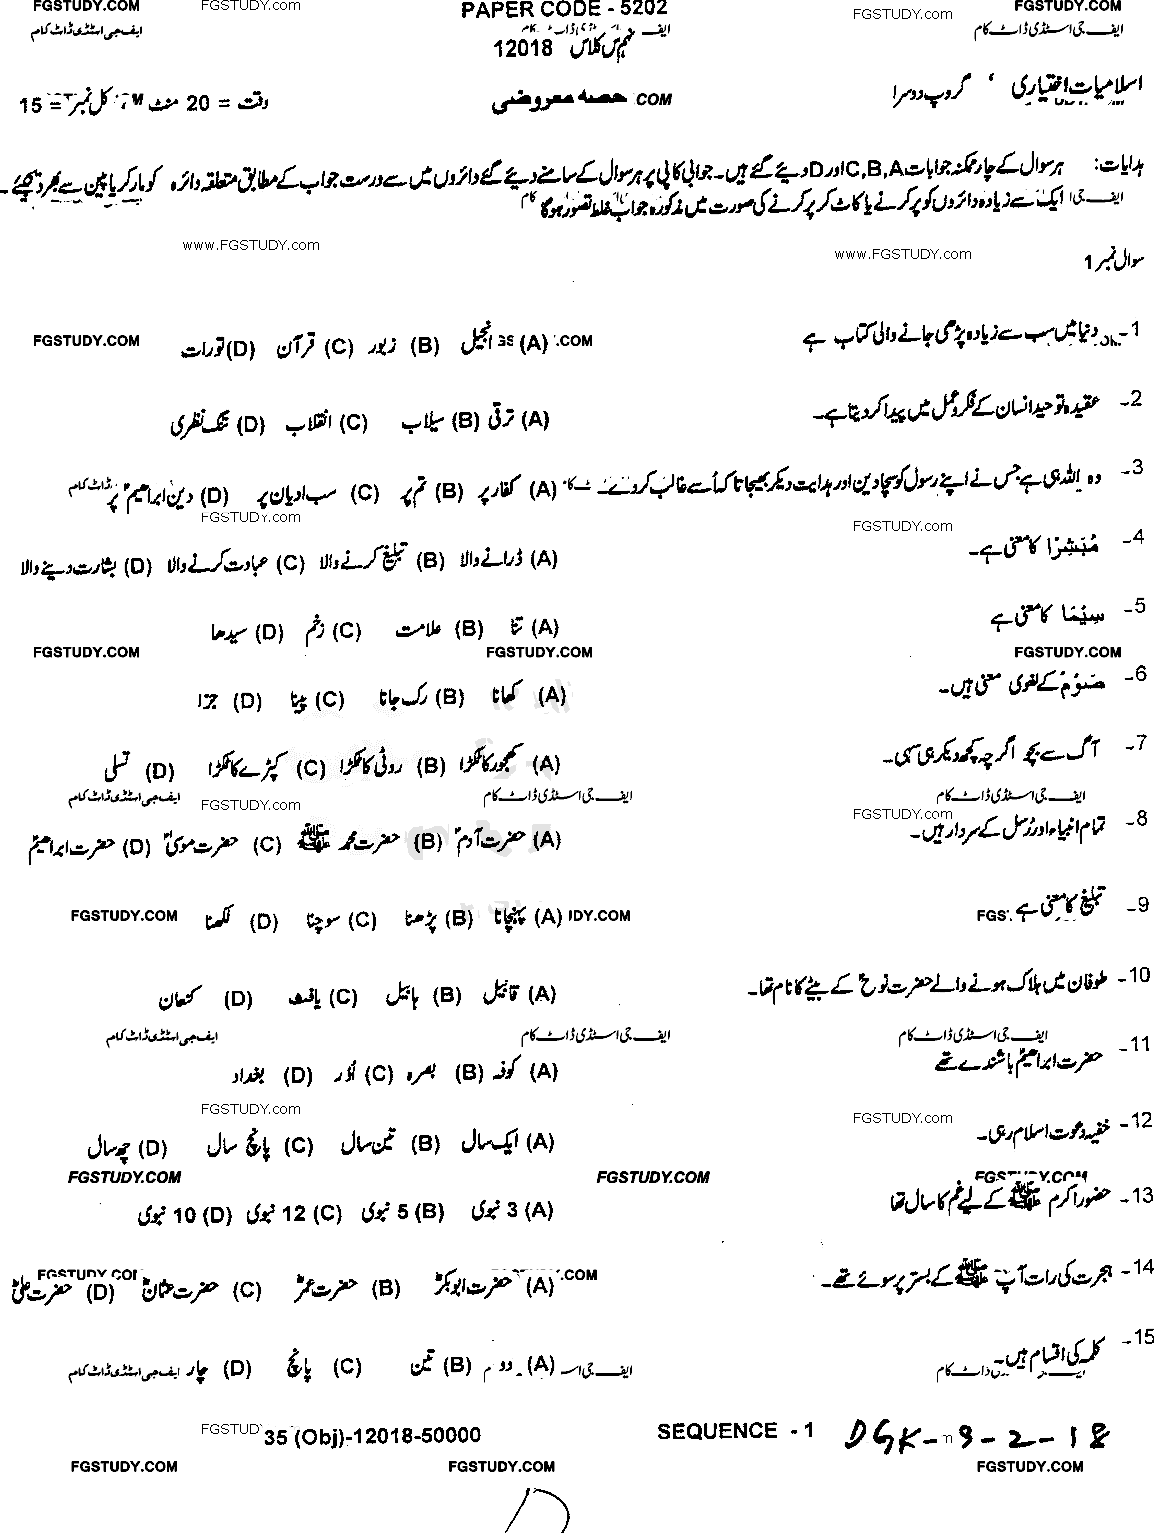 FGSTUDY.COM FGSTUDY.com PAPER CODE - 5202 FGSTUDY.com FGSTUDY.COM
ایف جی اسٹڈی ڈاٹ کام ایف جی اسٹڈی ڈاٹ کام
12018 نہم کلاس
اسلامیات اختیاری گروپ دوسرا حصہ معروضی COM وقت = 20 منٹ کل نمبر = 15
ہدایات: ہر سوال کے چار ممکنہ جوابات C,B,A اور D دیے گئے ہیں۔ جوابی کاپی پر ہر سوال کے سامنے دیے گئے دائروں میں سے درست جواب کے مطابق متعلقہ دائرہ کو مارکر یا پین سے بھر دیجئے۔
ایک سے زیادہ دائروں کو پر کرنے یا کاٹ کر پر کرنے کی صورت میں مذکورہ جواب غلط تصور ہوگا
www.FGSTUDY.com www.FGSTUDY.com
سوال نمبر 1
1- دنیا میں سب سے زیادہ پڑھی جانے والی کتاب ہے (A) انجیل (B) زبور (C) قرآن (D) تورات
FGSTUDY.COM .COM
2- عقیدہ توحید انسان کے فکر و عمل میں پیدا کر دیتا ہے۔ (A) ترقی (B) سیلاب (C) انقلاب (D) تنگ نظری
3- وہ اللہ ہی ہے جس نے اپنے رسول کو سچا دین اور ہدایت دیکر بھیجا تاکہ اُسے غالب کر دے۔ (A) کفار پر (B) تم پر (C) سب ادیان پر (D) دین ابراھیمؑ پر
FGSTUDY.com FGSTUDY.com
4- مُبَشِّرًا کا معنی ہے۔ (A) ڈرانے والا (B) تبلیغ کرنے والا (C) عبادت کرنے والا (D) بشارت دینے والا
5- سِیْمَا کا معنی ہے (A) تنا (B) علامت (C) زخم (D) سیدھا
FGSTUDY.COM FGSTUDY.COM FGSTUDY.COM
6- صَوْم کے لغوی معنی ہیں۔ (A) کھانا (B) رک جانا (C) پینا (D) جزا
7- آگ سے بچو اگرچہ کچھ دیکر ہی سہی۔ (A) کھجور کا ٹکڑا (B) روٹی کا ٹکڑا (C) کپڑے کا ٹکڑا (D) تسلی
ایف جی اسٹڈی ڈاٹ کام ایف جی اسٹڈی ڈاٹ کام ایف جی اسٹڈی ڈاٹ کام
FGSTUDY.com FGSTUDY.com
8- تمام انبیاء اور رُسل کے سردار ہیں۔ (A) حضرت آدمؑ (B) حضرت محمد ﷺ (C) حضرت موسیٰؑ (D) حضرت ابراھیمؑ
9- تبلیغ کا معنی ہے (A) پہنچانا (B) پڑھنا (C) سوچنا (D) لکھنا
FGSTUDY.COM
10- طوفان میں ہلاک ہونے والے حضرت نوحؑ کے بیٹے کا نام تھا۔ (A) قابیل (B) ہابیل (C) یافث (D) کنعان
ایف جی اسٹڈی ڈاٹ کام ایف جی اسٹڈی ڈاٹ کام ایف جی اسٹڈی ڈاٹ کام
11- حضرت ابراھیمؑ باشندے تھے (A) کوفہ (B) بصرہ (C) اُور (D) بغداد
FGSTUDY.com FGSTUDY.com
12- خفیہ دعوت اسلام رہی۔ (A) ایک سال (B) تین سال (C) پانچ سال (D) چھ سال
FGSTUDY.COM FGSTUDY.COM
13- حضور اکرم ﷺ کے لیے غم کا سال تھا (A) 3 نبوی (B) 5 نبوی (C) 12 نبوی (D) 10 نبوی
14- ہجرت کی رات آپ ﷺ کے بستر پر سوئے تھے۔ (A) حضرت ابوبکرؓ (B) حضرت عمرؓ (C) حضرت عثمانؓ (D) حضرت علیؓ
15- کلمہ کی اقسام ہیں۔ (A) دو (B) تین (C) پانچ (D) چار
ایف جی اسٹڈی ڈاٹ کام
35 (Obj)-12018-50000 SEQUENCE - 1 DGK-9-2-18
FGSTUDY.COM FGSTUDY.COM FGSTUDY.COM